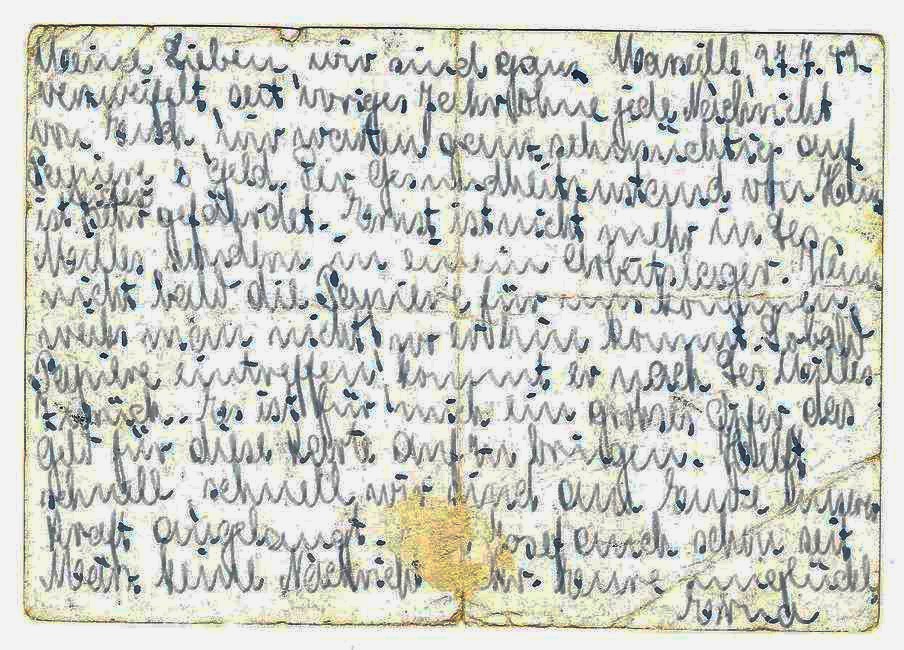 Meine Lieben wir sind ganz Marseille, 27.7.41.
verzweifelt, seit voriges Jahr ohne jede Nachricht
von Euch, wir warten ganz sehnsüchtig auf
Papiere & Geld. Der Gesundheitszustand von
ist sehr gefährdet. Ernst ist nicht mehr in Les
Milles sondern in einem Arbeitslager. Wenn
nicht bald die Papiere für uns kommen,
weiss man nicht, wohin kommt. Sobald
Papiere eintreffen, kommt er nach Les Milles
zurück. Es ist für mich ein grosses Opfer das
Geld für diese Karte aufzubringen. Helft
schnell, schnell wir sind am Ende unserer
Kraft angelangt. Josef auch schon seit
März keine Nachricht Eure unglückl.
Erna